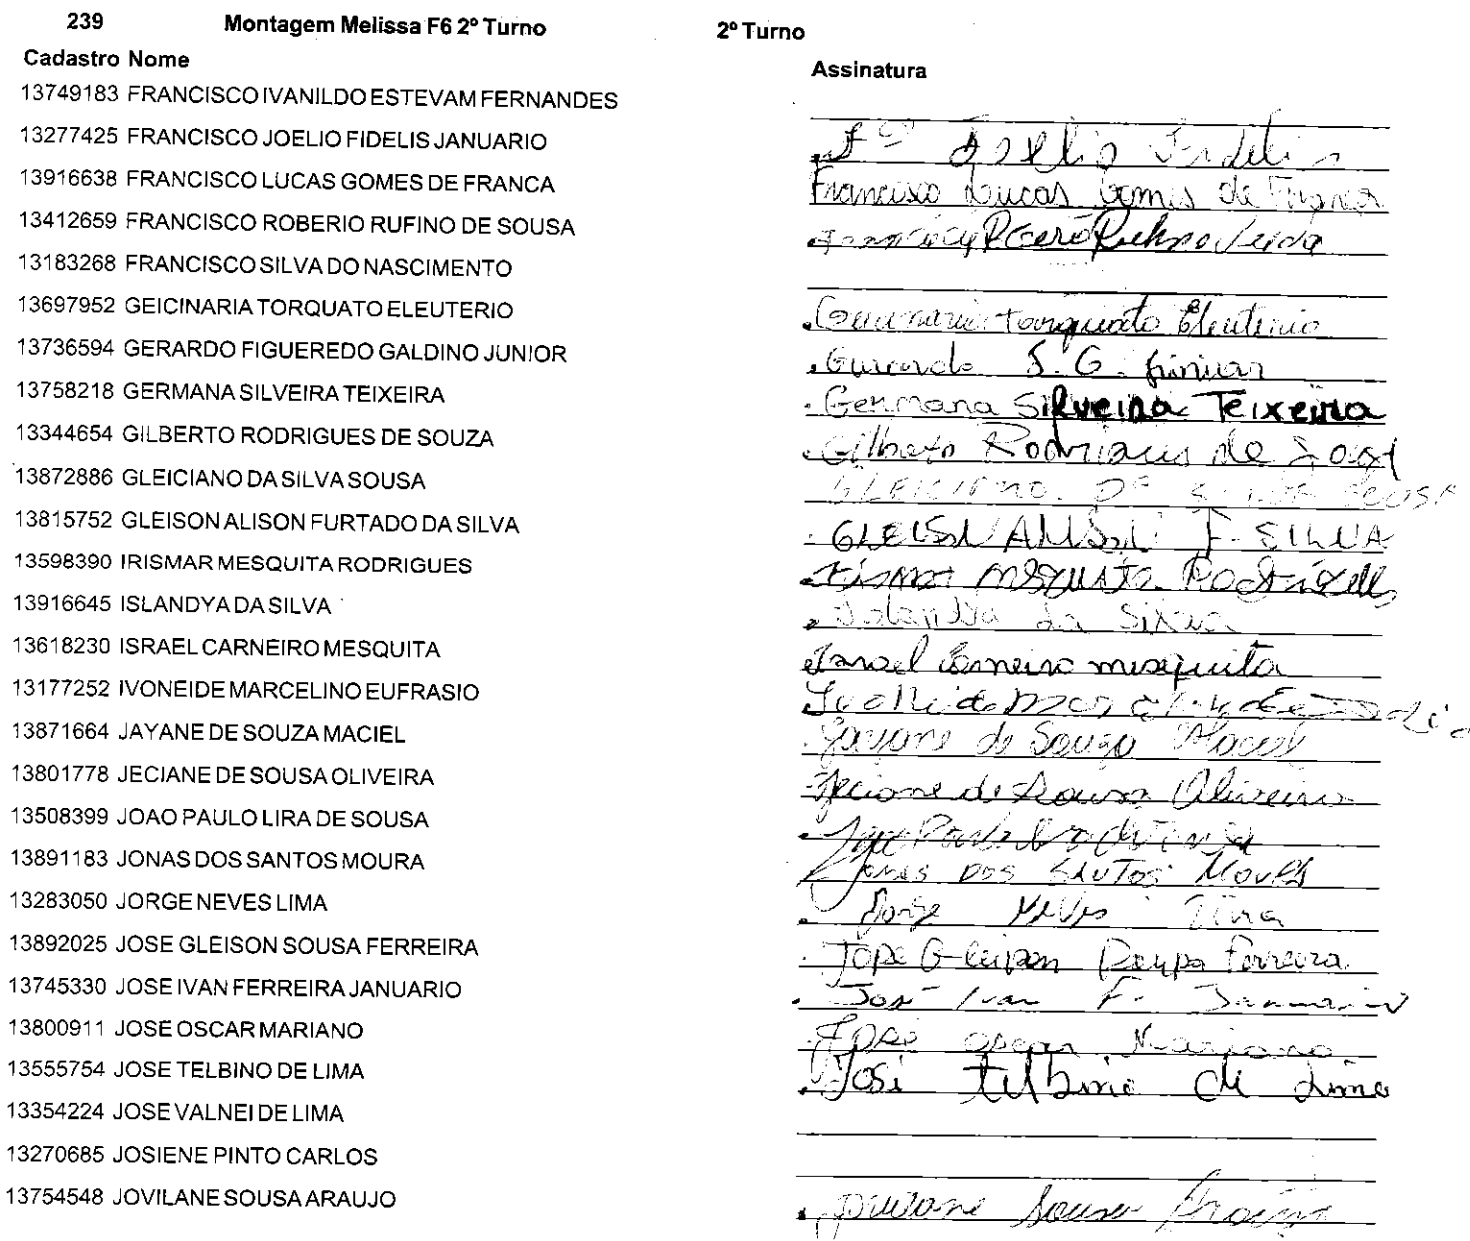 239 Montagem Melissa F6 2º Turno 2º Turno
Cadastro Nome Assinatura
13749183 FRANCISCO IVANILDO ESTEVAM FERNANDES
13277425 FRANCISCO JOELIO FIDELIS JANUARIO Fco Joelio Fidelis
13916638 FRANCISCO LUCAS GOMES DE FRANCA Francisco Lucas Gomes de França
13412659 FRANCISCO ROBERIO RUFINO DE SOUSA
13183268 FRANCISCO SILVA DO NASCIMENTO
13697952 GEICINARIA TORQUATO ELEUTERIO Geicinaria Torquato Eleuterio
13736594 GERARDO FIGUEREDO GALDINO JUNIOR Gerardo F. G. Junior
13758218 GERMANA SILVEIRA TEIXEIRA Germana Silveira Teixeira
13344654 GILBERTO RODRIGUES DE SOUZA Gilberto Rodrigues de
13872886 GLEICIANO DA SILVA SOUSA GLEICIANO DA SILVA SOUSA
13815752 GLEISON ALISON FURTADO DA SILVA GLEISON ALISON F. SILVA
13598390 IRISMAR MESQUITA RODRIGUES Mesquita Rodrigues
13916645 ISLANDYA DA SILVA Islandya da Silva
13618230 ISRAEL CARNEIRO MESQUITA Israel Carneiro mesquita
13177252 IVONEIDE MARCELINO EUFRASIO
13871664 JAYANE DE SOUZA MACIEL Jayane de Souza Maciel
13801778 JECIANE DE SOUSA OLIVEIRA Jeciane de Sousa Oliveira
13508399 JOAO PAULO LIRA DE SOUSA
13891183 JONAS DOS SANTOS MOURA Jonas DOS SANTOS Moura
13283050 JORGE NEVES LIMA Jorge Neves Lima
13892025 JOSE GLEISON SOUSA FERREIRA Jose Gleison Sousa Ferreira
13745330 JOSE IVAN FERREIRA JANUARIO José Ivan F. Januario
13800911 JOSE OSCAR MARIANO José oscar Mariano
13555754 JOSE TELBINO DE LIMA José telbino de Lima
13354224 JOSE VALNEI DE LIMA
13270685 JOSIENE PINTO CARLOS
13754548 JOVILANE SOUSA ARAUJO Jovilane Sousa Araujo